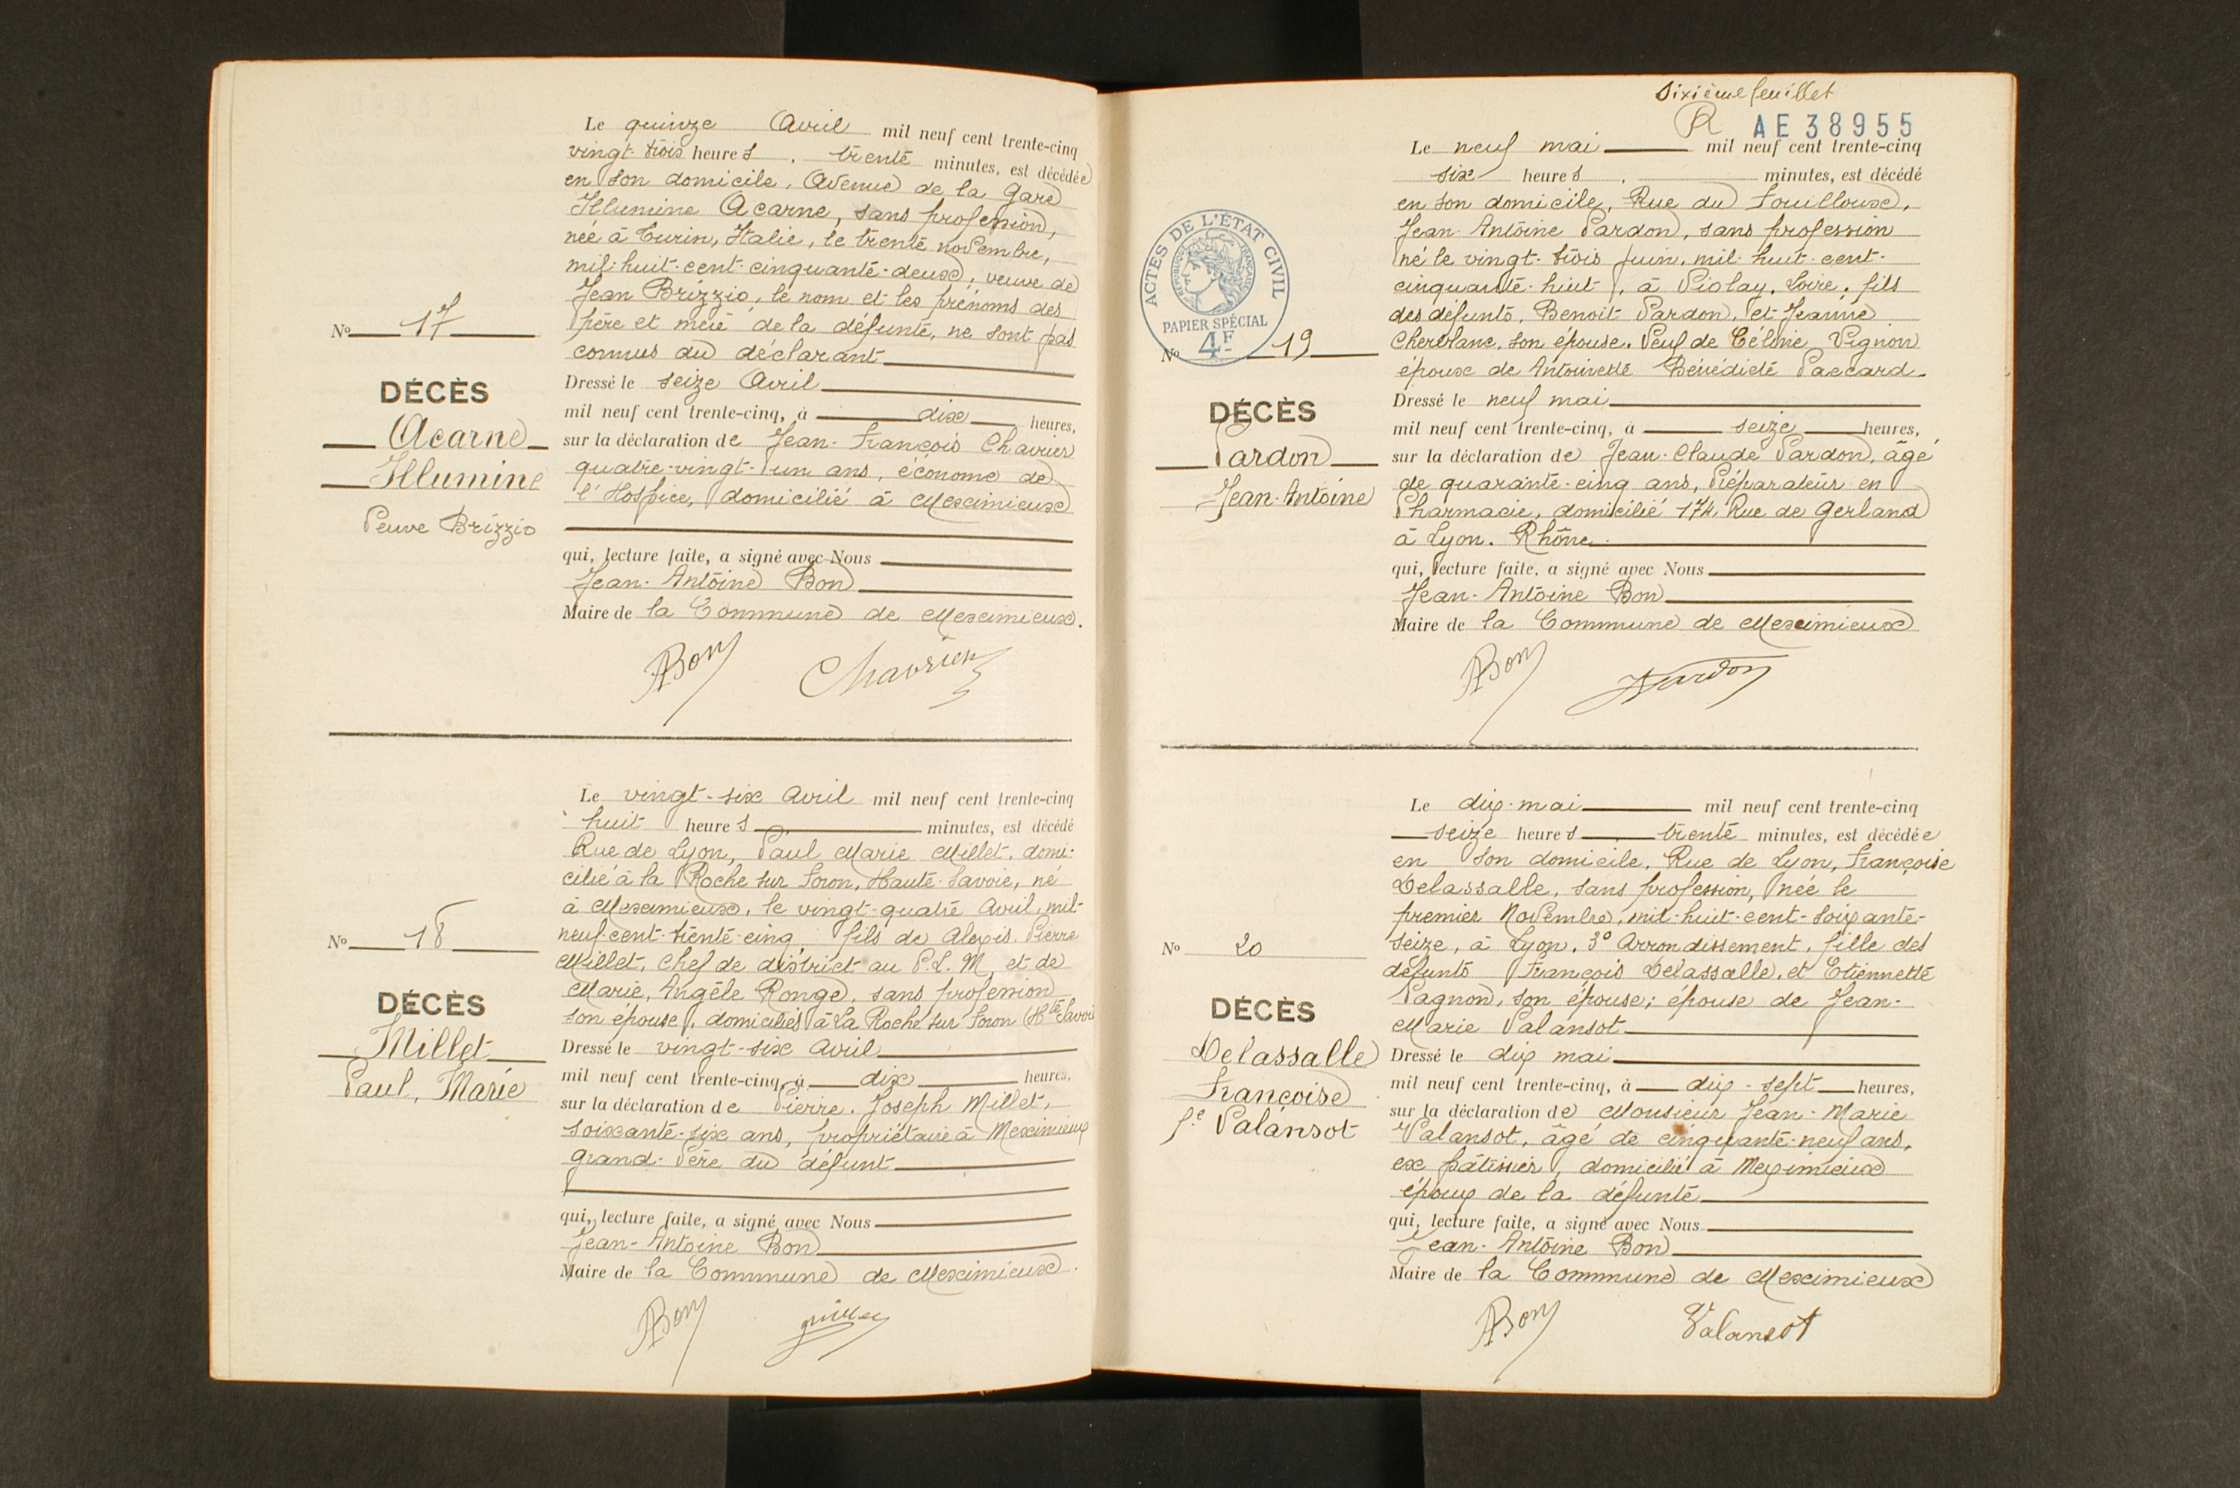 Le quinze Avril mil neuf cent trente-cinq
vingt-trois heures, trente minutes, est décédée
en son domicile, Avenue de la Gare
Illumine Acarne, sans profession,
née à Turin, Italie, le trente novembre,
mil-huit-cent-cinquante-deux; veuve de
Jean Brizzio, le nom et les prénoms des
père et mère de la défunte, ne sont pas
connus du déclarant
No 17
DÉCÈS
Acarne
Illumine
Veuve Brizzio
Dressé le seize Avril
mil neuf cent trente-cinq, à dix heures,
sur la déclaration de Jean-François Chavrier
quatre-vingt-un ans, économe de
l'Hospice, domicilié à Meximieux
qui, lecture faite, a signé avec Nous
Jean-Antoine Bon
Maire de la Commune de Meximieux.
ABon Chavrier
Le vingt-six Avril mil neuf cent trente-cinq
huit heures, minutes, est décédé
Rue de Lyon, Paul Marie Millet, domi-
cilié à la Roche sur Foron, Haute-Savoie, né
à Meximieux, le vingt-quatre Avril, mil-
neuf-cent-trente-cinq, fils de Alexis, Pierre
Millet, Chef de district au P.L.M, et de
Marie, Angèle Ronge, sans profession
son épouse, domiciliés à La Roche sur Foron (Hte Savoie
No 18
DÉCÈS
Millet
Paul, Marie
Dressé le vingt-six Avril
mil neuf cent trente-cinq, à dix heures,
sur la déclaration de Pierre, Joseph Millet,
soixante-six ans, propriétaire à Meximieux
grand-Père du défunt
qui, lecture faite, a signé avec Nous
Jean-Antoine Bon
Maire de la Commune de Meximieux.
ABon
sixième feuillet
AE 38955
Le neuf mai mil neuf cent trente-cinq
six heures, minutes, est décédé
en son domicile, Rue du Fouilloux,
Jean-Antoine Pardon, sans profession
né le vingt-trois Juin, mil-huit-cent-
cinquante-huit, à Violay, Loire, fils
des défunts, Benoit Pardon, et Jeanne
Cherblanc, son épouse. Veuf de Vignon
époux de Antoinette Bénédicte Paccard
ACTES DE L'ÉTAT CIVIL
RÉPUBLIQUE FRANÇAISE
PAPIER SPÉCIAL
4F
No 19
DÉCÈS
Pardon
Jean-Antoine
Dressé le neuf mai
mil neuf cent trente-cinq, à seize heures,
sur la déclaration de Jean-Claude Pardon, âgé
de quarante-cinq ans, Préparateur en
Pharmacie, domicilié 174 Rue de Gerland
à Lyon. Rhône.
qui, lecture faite, a signé avec Nous
Jean-Antoine Bon
Maire de la Commune de Meximieux
ABon Pardon
Le dix mai mil neuf cent trente-cinq
seize heures, trente minutes, est décédée
en son domicile, Rue de Lyon, Françoise
Delassalle, sans profession, née le
premier Novembre, mil-huit-cent-soixante-
seize, à Lyon, 3o Arrondissement, fille des
défunts François Delassalle, et Etiennette
Pagnon, son épouse; épouse de Jean-
Marie Valansot
No 20
DÉCÈS
Delassalle
Françoise
fe Valansot
Dressé le dix mai
mil neuf cent trente-cinq, à dix-sept heures,
sur la déclaration de Monsieur Jean-Marie
Valansot, âgé de cinquante-neuf ans,
ex pâtissier, domicilié à Meximieux
époux de la défunte
qui, lecture faite, a signé avec Nous
Jean-Antoine Bon
Maire de la Commune de Meximieux
ABon Valansot